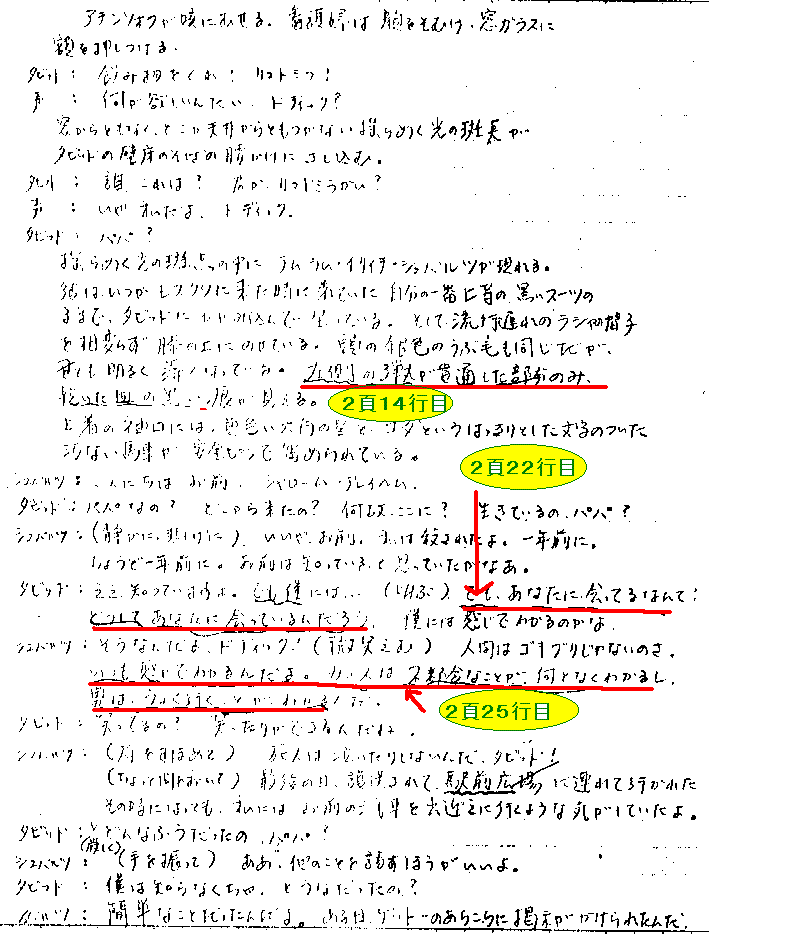 アデンツォフが咳にむせる。看護婦は顔をそむけ、窓ガラスに
額を押しつける。
タビッド：飲み物をくれ！
声：何が欲しいんだい、ドディック？
窓からともなく、どこか天井からともつかない揺らめく光の斑点が
タビッドの寝床のそばの腰かけにさし込む。
タビッド：誰、これは？ 君か、
声：いや、私だよ、ドディック。
タビッド：パパ？
揺らめく光の斑点の中に が現れる。
彼はいつかモスクワに来た時に着ていた自分の一番上等の、黒いスーツの
ままで、タビッドに 坐っている。そして流行遅れのラシャの帽子
を相変らず膝の上にのせている。頭の銀色のうぶ毛も同じだが、
明るく薄くなっている。 が貫通した部分のみ、
黒い 痕が見える。
2頁14行目
上着の袖口には、黄色い六角の星と、ユダというはっきりとした文字のついた
が安全ピンで留められている。
2頁22行目
シュバルツ：こんにちは、お前、シャローム・アレイヘム。
タビッド：パパなの？ どこから来たの？ 何故、ここに？ 生きているの、パパ？
シュバルツ：（静かに、悲しげに） いいや、お前。私は殺されたよ。一年前に。
ちょうど一年前に。お前は知っていると思っていたがなあ。
タビッド：ええ、知っていますよ。 僕には…（叫ぶ） でも、あなたに会ってるなんて！
どうしてあなたに会っているんだろう。 僕には感じでわかるのかな。
シュバルツ：そうなんだよ、ドディック！（微笑えむ） 人間はゴキブリじゃないのさ。
いつも感じでわかるんだよ。 人は不都合なことが、何となくわかるし、
男は、うまく行くことがわかるんだ。
2頁25行目
タビッド：笑ってるの？ 笑ったりができるんだね。
シュバルツ：（肩をすぼめて） 死人は泣いたりしないんだ、タビッド！
（ちょっと間をおいて） 最後の日、護送されて、駅前広場に連れて行かれた
その時になっても、私にはお前の を出迎えに行くような気がしていたよ。
タビッド：どんなふうだったの、パパ？
シュバルツ：（手を振って） ああ、他のことを話すほうがいいよ。
タビッド：僕は知らなくちゃ、どうなだったの？
シュバルツ：簡単なことだったんだよ。ある日、ゲットーのあちこちに掲示がかけられたんだ、